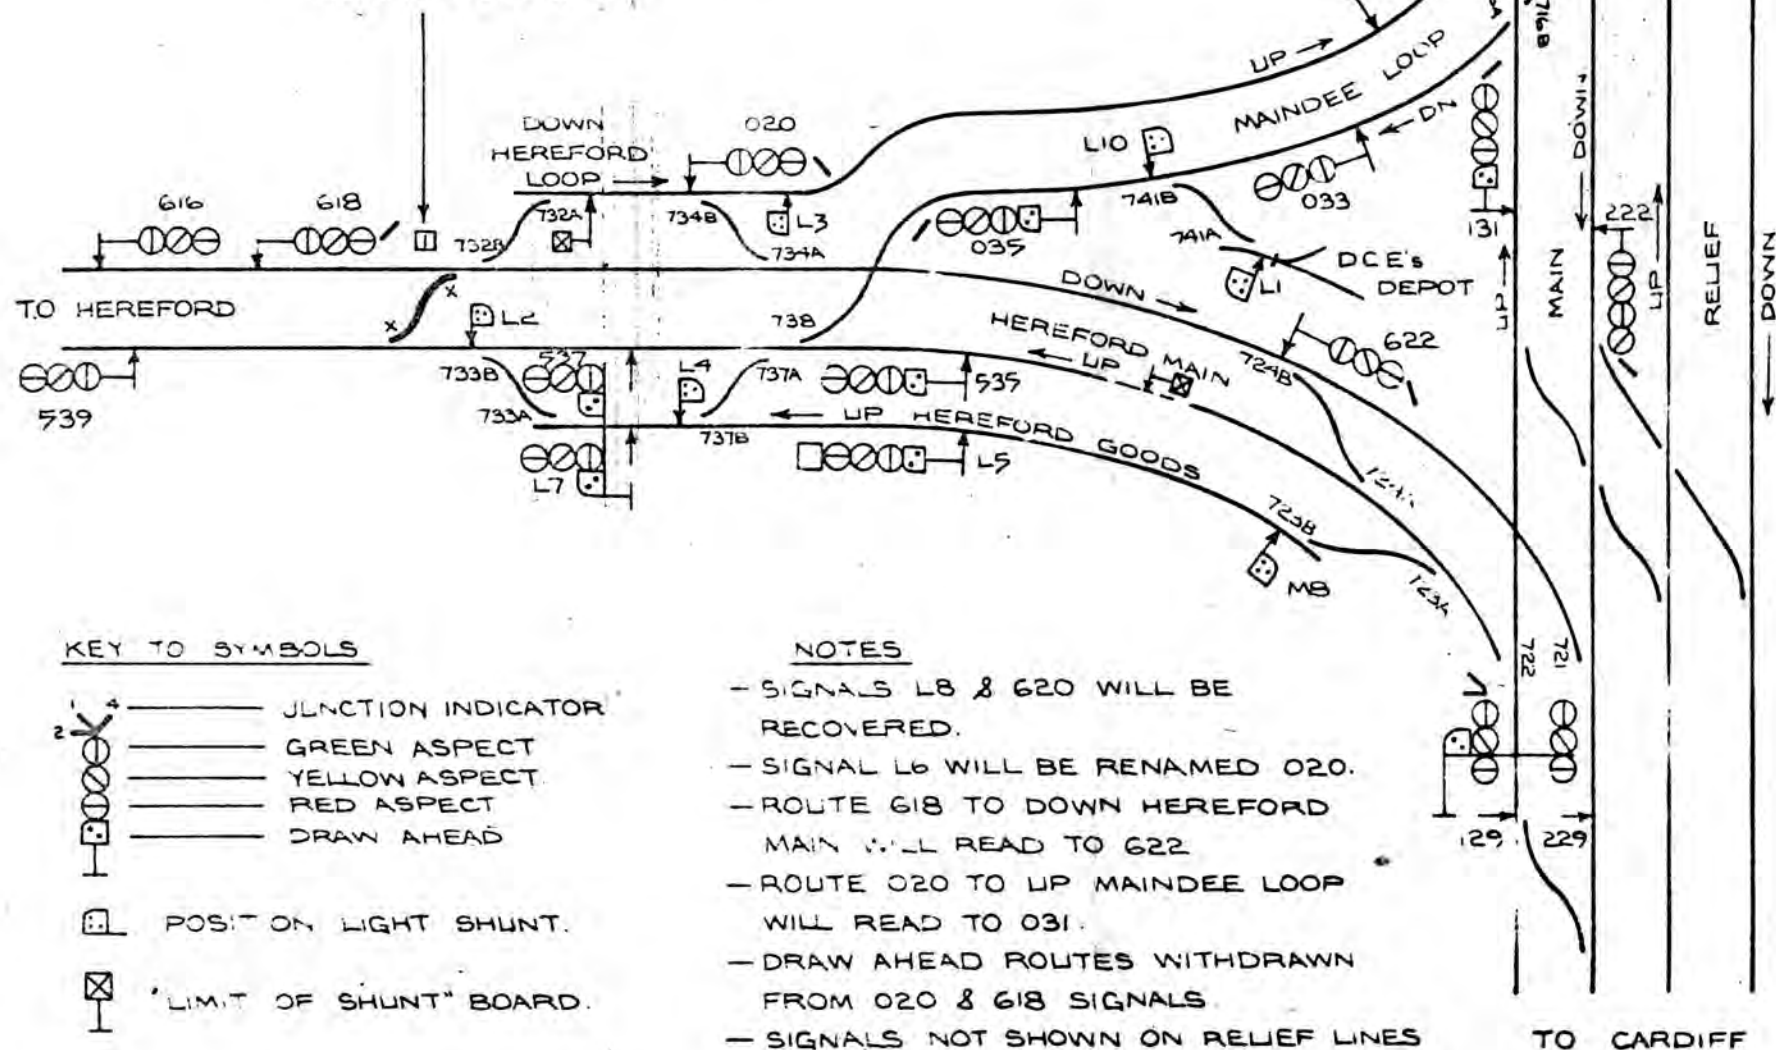 716B
UP →
MAINDEE LOOP
← DN
DOWN
HEREFORD
LOOP →
020
L10
033
131
DOWN
222
616
618
732A
732B
734B
734A
L3
035
741B
741A
DCE's
DEPOT
L1
UP
MAIN
UP
RELIEF
DOWN
TO HEREFORD
L2
738
DOWN →
HEREFORD MAIN
← UP
622
724B
539
733B
733A
537
L4
737A
737B
535
← UP HEREFORD GOODS
L7
L5
724A
723B
723A
M8
722
721
129
229
KEY TO SYMBOLS
1 4
2
JUNCTION INDICATOR
GREEN ASPECT
YELLOW ASPECT
RED ASPECT
DRAW AHEAD
POSITION LIGHT SHUNT.
"LIMIT OF SHUNT" BOARD.
NOTES
— SIGNALS L8 & 620 WILL BE
RECOVERED.
— SIGNAL L6 WILL BE RENAMED 020.
— ROUTE 618 TO DOWN HEREFORD
MAIN WILL READ TO 622
— ROUTE 020 TO UP MAINDEE LOOP
WILL READ TO 031.
— DRAW AHEAD ROUTES WITHDRAWN
FROM 020 & 618 SIGNALS.
— SIGNALS NOT SHOWN ON RELIEF LINES
TO CARDIFF